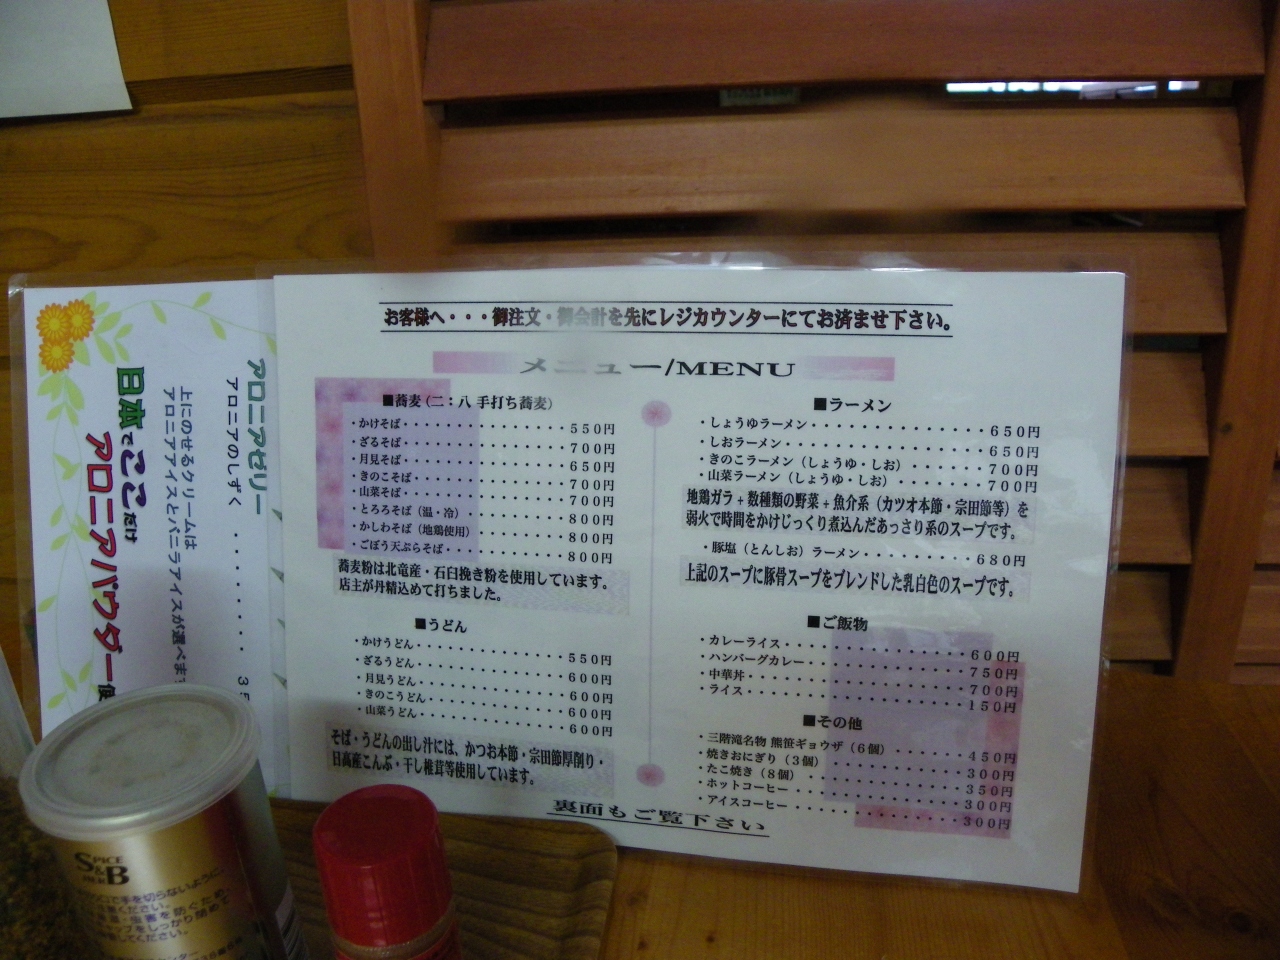 お客様へ・・・御注文・御会計を先にレジカウンターにてお済ませ下さい。
メニュー/MENU
■蕎麦（二：八 手打ち蕎麦）
・かけそば・・・・・・・・・・・・・・550円
・ざるそば・・・・・・・・・・・・・・700円
・月見そば・・・・・・・・・・・・・・650円
・きのこそば・・・・・・・・・・・・・700円
・山菜そば・・・・・・・・・・・・・・700円
・とろろそば（温・冷）・・・・・・・・800円
・かしわそば（地鶏使用）・・・・・・・800円
・ごぼう天ぷらそば・・・・・・・・・・800円
蕎麦粉は北竜産・石臼挽き粉を使用しています。
店主が丹精込めて打ちました。
■うどん
・かけうどん・・・・・・・・・・・・・550円
・ざるうどん・・・・・・・・・・・・・600円
・月見うどん・・・・・・・・・・・・・600円
・きのこうどん・・・・・・・・・・・・600円
・山菜うどん・・・・・・・・・・・・・600円
そば・うどんの出し汁には、かつお本節・宗田節厚削り・
日高産こんぶ・干し椎茸等使用しています。
■ラーメン
・しょうゆラーメン・・・・・・・・・・650円
・しおラーメン・・・・・・・・・・・・650円
・きのこラーメン（しょうゆ・しお）・・・700円
・山菜ラーメン（しょうゆ・しお）・・・・700円
地鶏ガラ＋数種類の野菜＋魚介系（カツオ本節・宗田節等）を
弱火で時間をかけじっくり煮込んだあっさり系のスープです。
・豚塩（とんしお）ラーメン・・・・・・680円
上記のスープに豚骨スープをブレンドした乳白色のスープです。
■ご飯物
・カレーライス・・・・・・・・・・・・600円
・ハンバーグカレー・・・・・・・・・・750円
・中華丼・・・・・・・・・・・・・・・700円
・ライス・・・・・・・・・・・・・・・150円
■その他
・三階滝名物 熊笹ギョウザ（6個）・・・・450円
・焼きおにぎり（3個）・・・・・・・・・300円
・たこ焼き（8個）・・・・・・・・・・・350円
・ホットコーヒー・・・・・・・・・・・300円
・アイスコーヒー・・・・・・・・・・・300円
裏面もご覧下さい
アロニアゼリー
アロニアのしずく・・・・・・・・
上にのせるクリームは
アロニアアイスとバニラアイスが選べます
日本でここだけ
アロニアパウダー使
SPICE
S&B